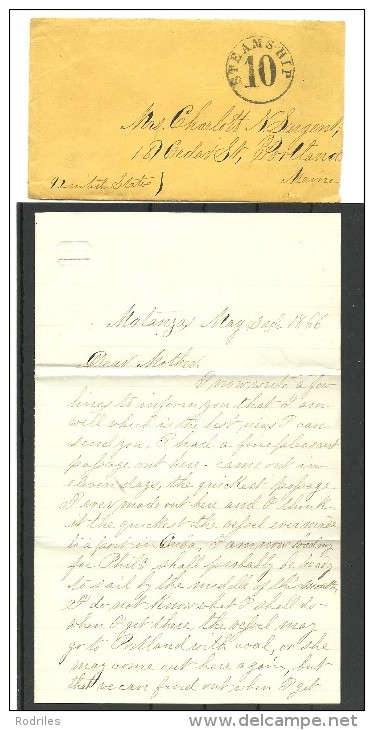 STEAMSHIP
10
Mrs. Charlott N Sargent,
18 Cedar St, Portland
Maine
United States
Matanzas May 3rd. 1866
Dear Mother.
I now write a few
lines to inform you that I am
well which is the best news I can
send you. I had a fine pleasant
passage out here - came out in
eleven days, the quickest passage
I ever made out here and I think
it the quickest the vessel ever made
to a port in Cuba, I am now loading
for Phil'a shall probably be ready
to sail by the middle of this month,
I do not know what I shall do
when I get there, the vessel may
go to Portland with coal, or she
may come out here again, but
that we can find out when I get
Rodriles
delcampe.net